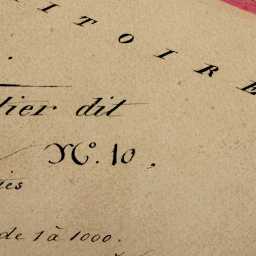 ITOIRE
tier dit
N.° 10,
de 1 à 1000.